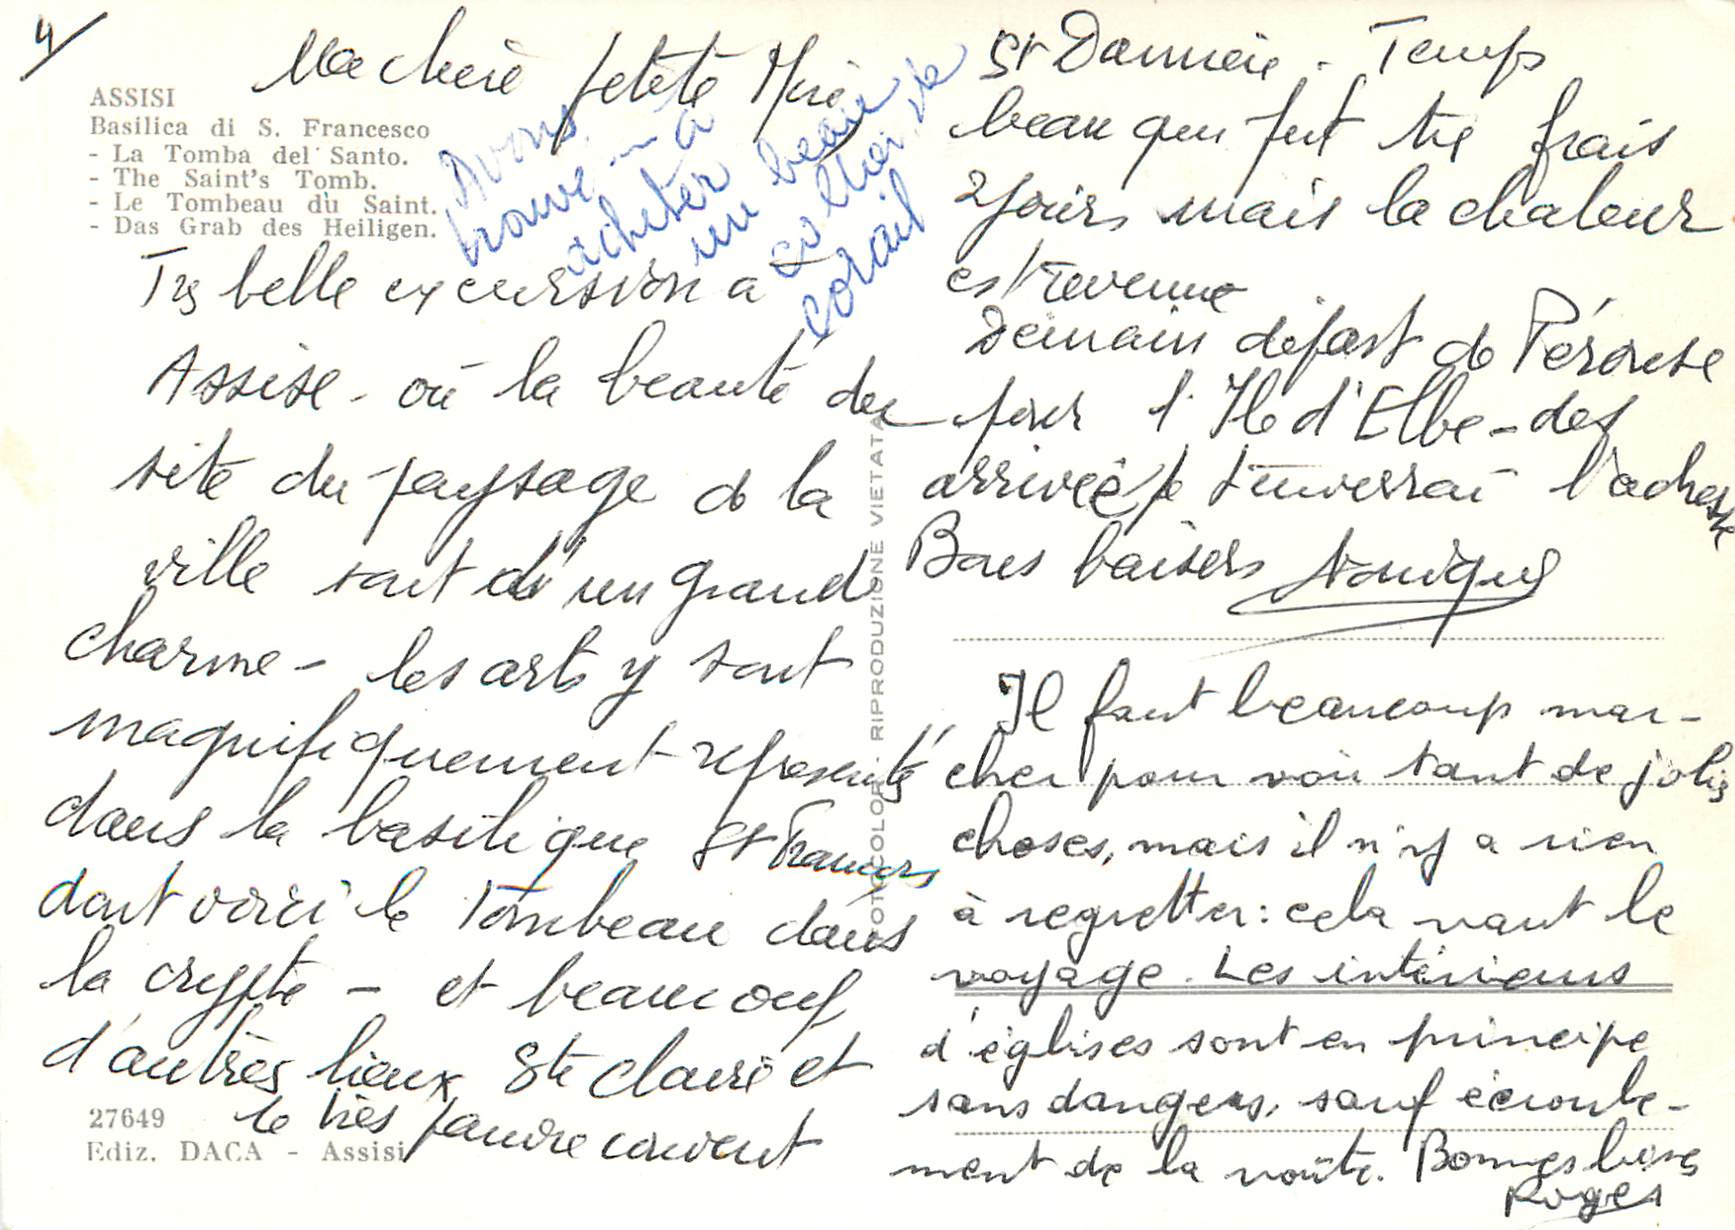 4/
ASSISI
Basilica di S. Francesco
- La Tomba del Santo.
- The Saint's Tomb.
- Le Tombeau du Saint.
- Das Grab des Heiligen.
Ma chère petite
Avons
trouvé à
acheter
un beau
collier de
corail
Très belle excursion à
Assise - où la beauté du
site du paysage de la
ville sont d'un grand
charme - les arts y sont
magnifiquement représentés
dans la basilique St François
dont voici le Tombeau dans
la crypte - et beaucoup
d'autres lieux Ste Claire et
le très pauvre couvent
27649
Ediz. DACA - Assisi
FOTOCOLOR RIPRODUZIONE VIETATA
St Damien. Temps
beau qui fut très frais
2 jours mais la chaleur
est revenue
Demain départ de Pérouse
pour l'Ile d'Elbe - dès
arrivée je t'enverrai l'adresse
Bons baisers
Il faut beaucoup mar-
cher pour voir tant de jolies
choses, mais il n'y a rien
à regretter: cela vaut le
voyage. Les intérieurs
d'églises sont en principe
sans dangers, sauf écroule-
ment de la voûte. Bonnes bises
Roger